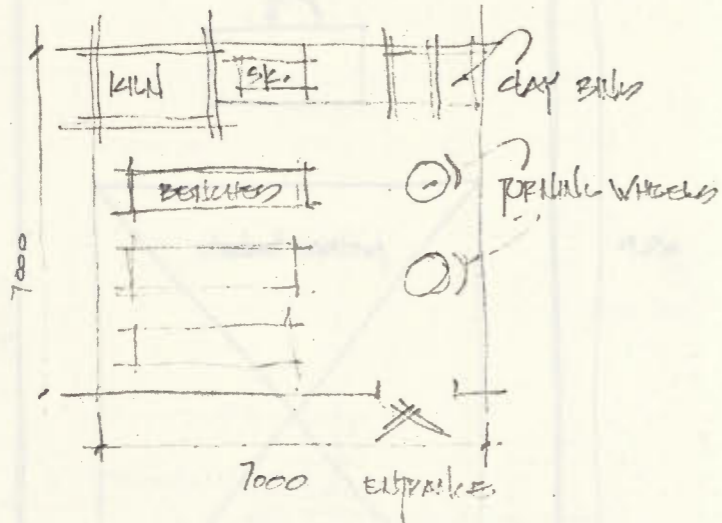 KILN
SK.
CLAY BINS
BENCHES
TURNING WHEELS
7000
7000
ENTRANCE